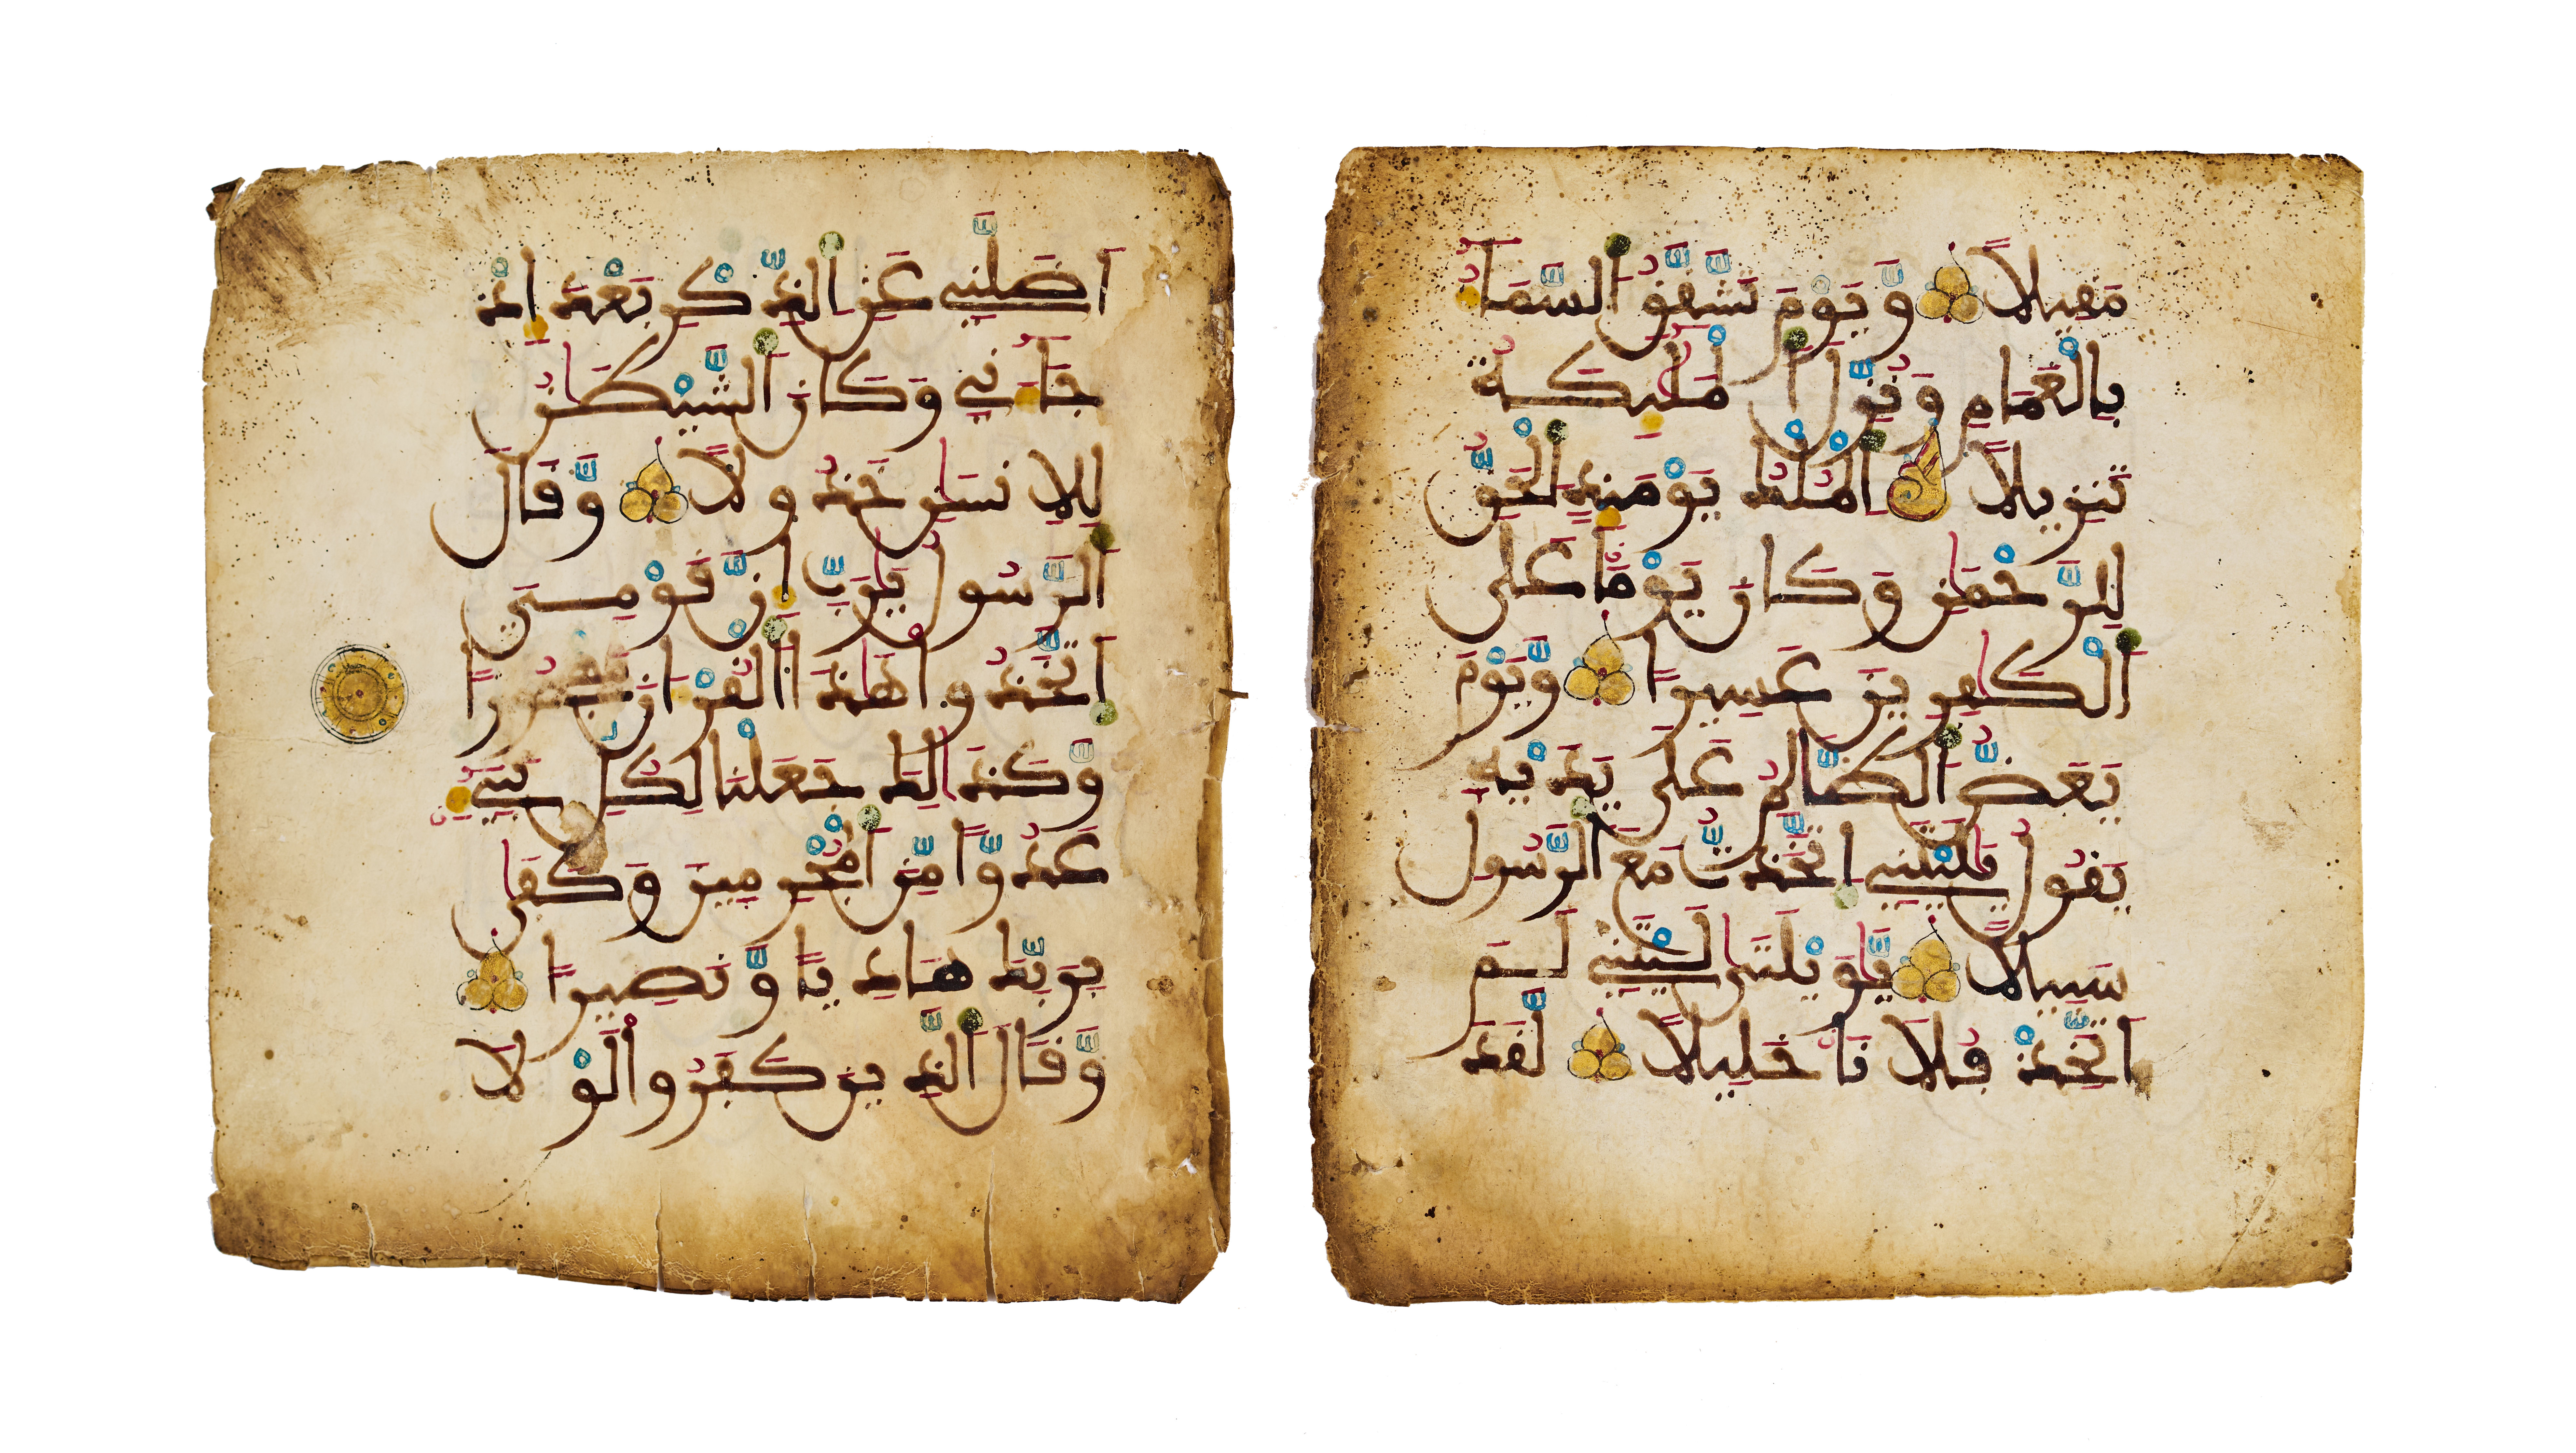 مَقِيلًا وَيَوْمَ تَشَّقَّقُ السَّمَآءُ
بِالْغَمَٰمِ وَنُزِّلَ الْمَلَٰٓئِكَةُ
تَنزِيلًا الْمُلْكُ يَوْمَئِذٍ الْحَقُّ
لِلرَّحْمَٰنِ وَكَانَ يَوْمًا عَلَى
الْكَٰفِرِينَ عَسِيرًا وَيَوْمَ
يَعَضُّ الظَّالِمُ عَلَىٰ يَدَيْهِ
يَقُولُ يَٰلَيْتَنِي اتَّخَذتُّ مَعَ الرَّسُولِ
سَبِيلًا يَٰوَيْلَتَىٰ لَيْتَنِي لَمَ
اَتَّخِذْ فُلَانًا خَلِيلًا لَّقَدَ
اَضَلَّنِي عَنِ الذِّكْرِ بَعْدَ إِذْ
جَآءَنِي وَكَانَ الشَّيْطَٰنُ
لِلِانسَٰنِ خَذُولًا وَقَالَ
الرَّسُولُ يَٰرَبِّ إِنَّ قَوْمِيَ
اَتَّخَذُوا هَٰذَا الْقُرْءَانَ مَهْجُورًا
وَكَذَٰلِكَ جَعَلْنَا لِكُلِّ نَبِيٓءٍ
عَدُوًّا مِّنَ الْمُجْرِمِينَ وَكَفَىٰ
بِرَبِّكَ هَادِيًا وَنَصِيرًا
وَقَالَ الَّذِينَ كَفَرُوا لَوْلَا